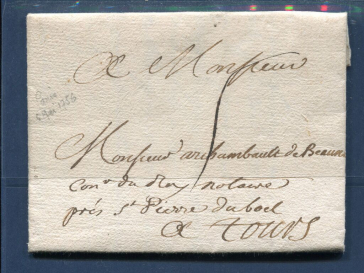 A Monsieur
Monsieur archambault de Beaune
Coner du Roy notaire
prés St Pierre du boel
A tours